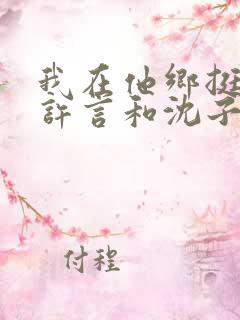 我在他鄉挺
許言和沈子
付程